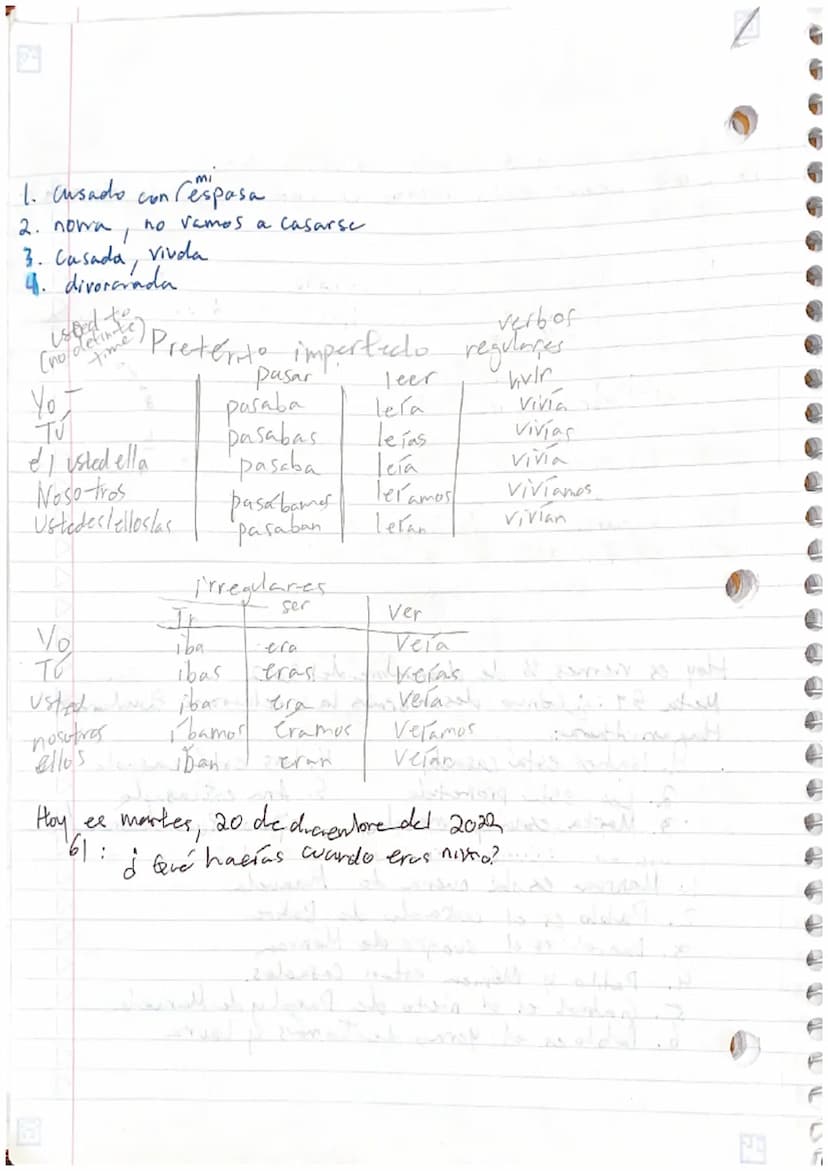 1. casado con mi espasa
2. novia, no vamos a casarse
3. Casada, viuda
4. divorciada
used to
(no definite time)
Pretérito imperfecto verbos regulares
pasar leer vivir
Yo pasaba leía vivía
Tú pasabas leías vivías
él usted ella pasaba leía vivía
Nosotros pasábamos leíamos vivíamos
Ustedes/ellos/as pasaban leían vivían
irregulares
Ir ser ver
Yo iba era Veía
Tú ibas eras veías
usted iba era veías
nosotros íbamos éramos veíamos
ellos iban eran veían
Hoy es martes, 20 de diciembre del 2022
61: ¿Qué hacías cuando eras niño?